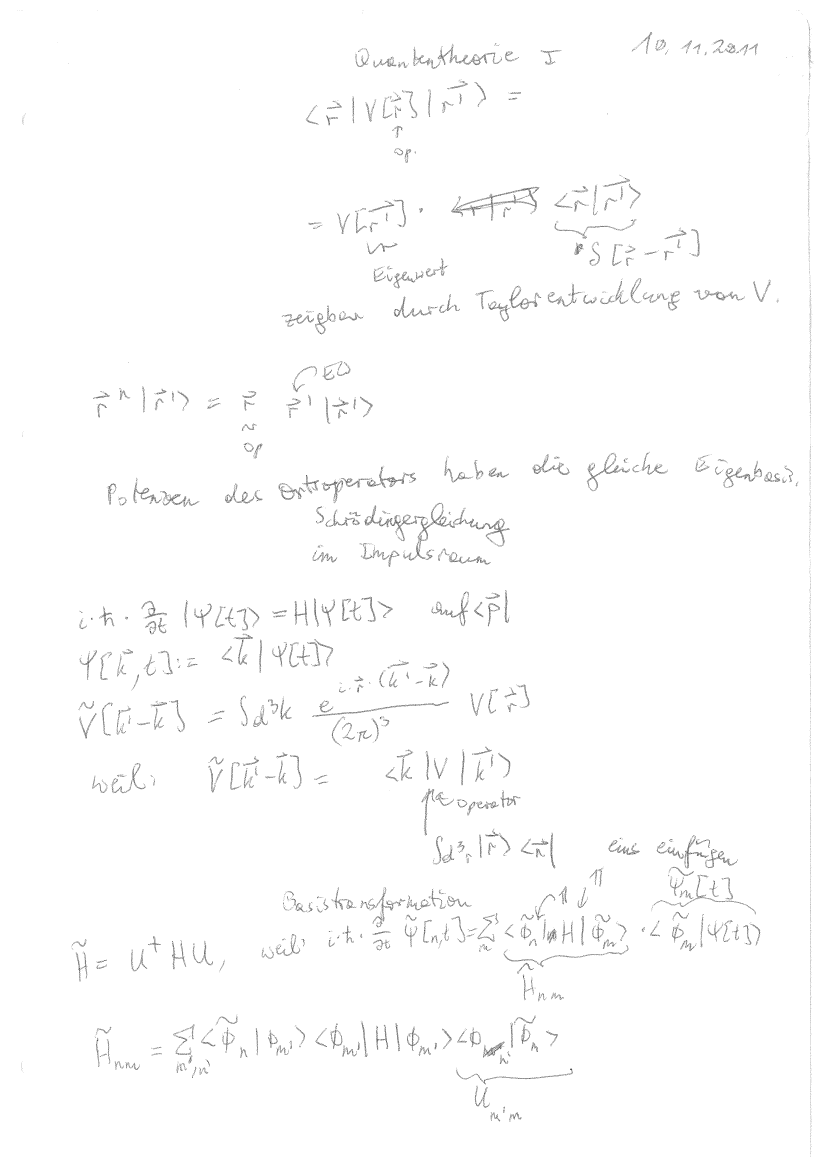 Quantentheorie I 10.11.2011
⟨r⃗|V[r⃗]|r⃗'⟩ =
↑
Op.
= V[r⃗'] · ⟨r⃗|r⃗'⟩
Eigenwert δ[r⃗-r⃗']
zeigbar durch Taylorentwicklung von V.
EW
r⃗ⁿ|r⃗'⟩ = r⃗ r⃗'|r⃗'⟩
Op
Potenzen des Ortsoperators haben die gleiche Eigenbasis.
Schrödingergleichung
im Impulsraum
i·ħ·∂/∂t |Ψ[t]⟩ = H|Ψ[t]⟩ auf ⟨p⃗|
Ψ[k⃗,t] := ⟨k⃗|Ψ[t]⟩
Ṽ[k⃗'-k⃗] = ∫d³k e^{i·r⃗·(k⃗'-k⃗)}/(2π)³ V[r⃗]
weil: Ṽ[k⃗'-k⃗] = ⟨k⃗|V|k⃗'⟩
Operator
∫d³r |r⃗⟩⟨r⃗| eins einfügen
Basistransformation 𝟙 𝟙 Ψ̃ₘ[t]
H̃ = U⁺HU, weil: i·ħ·∂/∂t Ψ̃[n,t] = Σₘ ⟨Φ̃ₙ|H|Φ̃ₘ⟩·⟨Φ̃ₘ|Ψ[t]⟩
H̃ₙₘ
H̃ₙₘ = Σ_{m',n'} ⟨Φ̃ₙ|Φ_{m'}⟩⟨Φ_{m'}|H|Φ_{m'}⟩⟨Φ_{n'}|Φ̃ₙ⟩
U_{m'm}